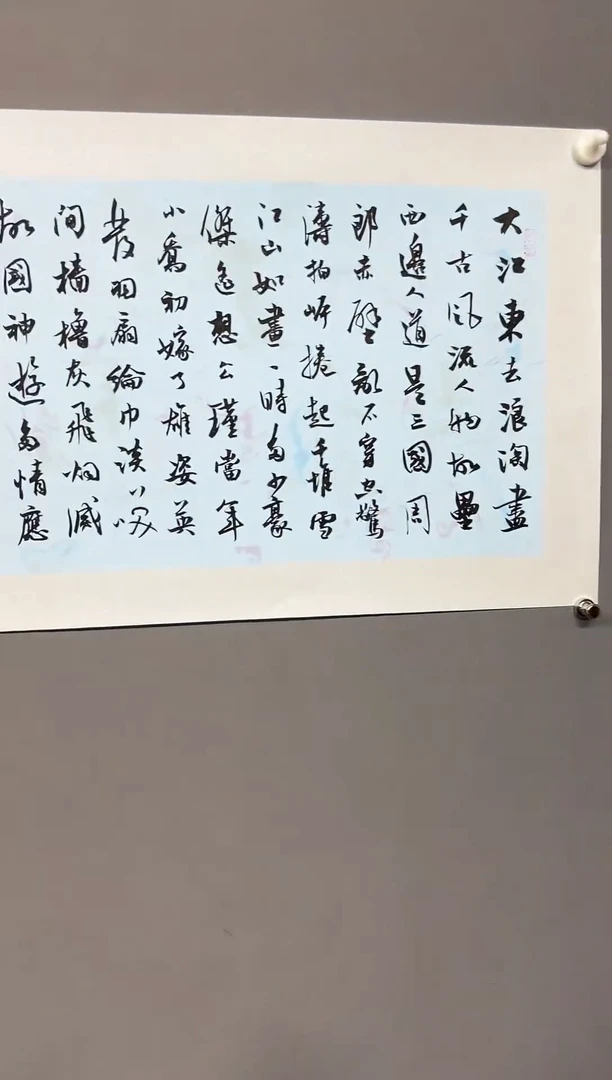 大江東去浪淘盡
千古風流人物故壘
西邊人道是三國周
郎赤壁亂石穿空驚
濤拍岸捲起千堆雪
江山如畫一時多少豪
傑遙想公瑾當年
小喬初嫁了雄姿英
發羽扇綸巾談笑
間檣櫓灰飛烟滅
故國神遊多情應